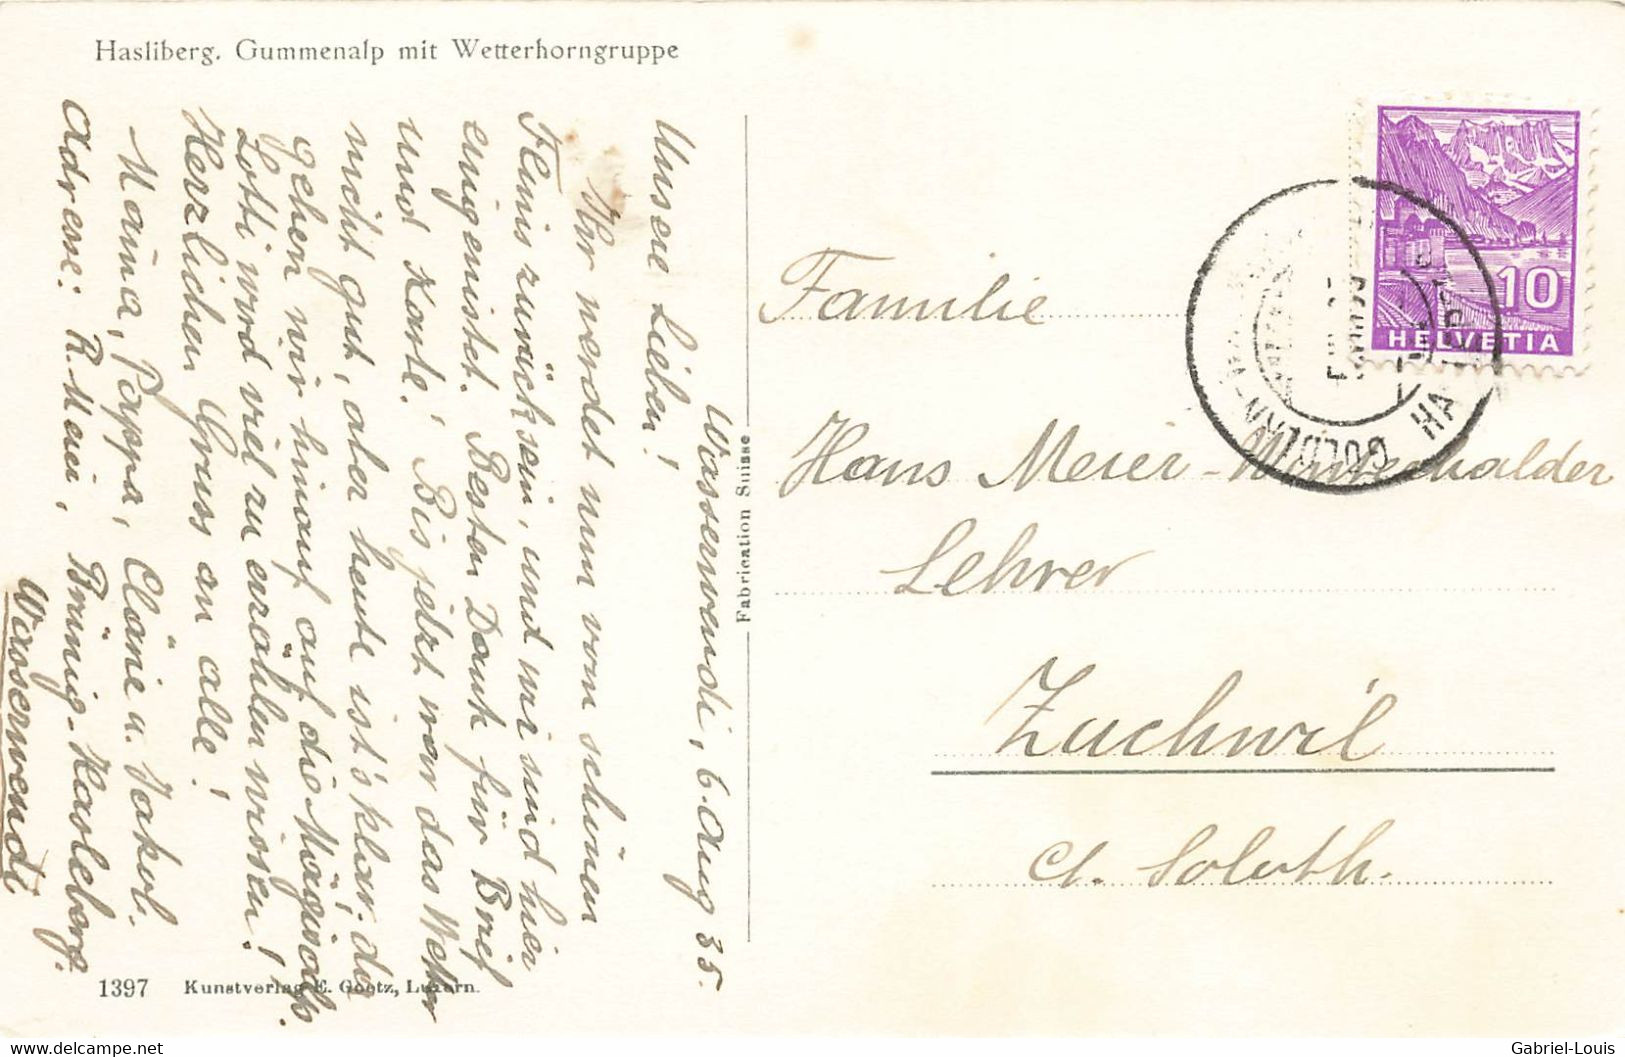 Hasliberg. Gummenalp mit Wetterhorngruppe
Wasserwendi, 6. Aug 35.
Unsere Lieben!
Ihr werdet nun vom schönen
Flims zurück sein, und wir sind hier
eingenistet. Besten Dank für Brief
und Karte! Bis jetzt war das Wetter
nicht gut, aber heute ist's klar, da
gehen wir hinauf auf die Mägisalp.
Lotti wird viel zu erzählen wissen!
Herzlichen Gruss an alle!
Mama, Pappa, Cläire u. Jakob.
Adresse: R. Meier, Brünig-Hasleberg.
Wasserwendi
1397 Kunstverlag E. Goetz, Luzern.
Fabrication Suisse
10
HELVETIA
GOLDERN
Familie
Hans Meier-Winterhalder
Lehrer
Zuchwil
Ct. Soloth.
delcampe.net
Gabriel-Louis